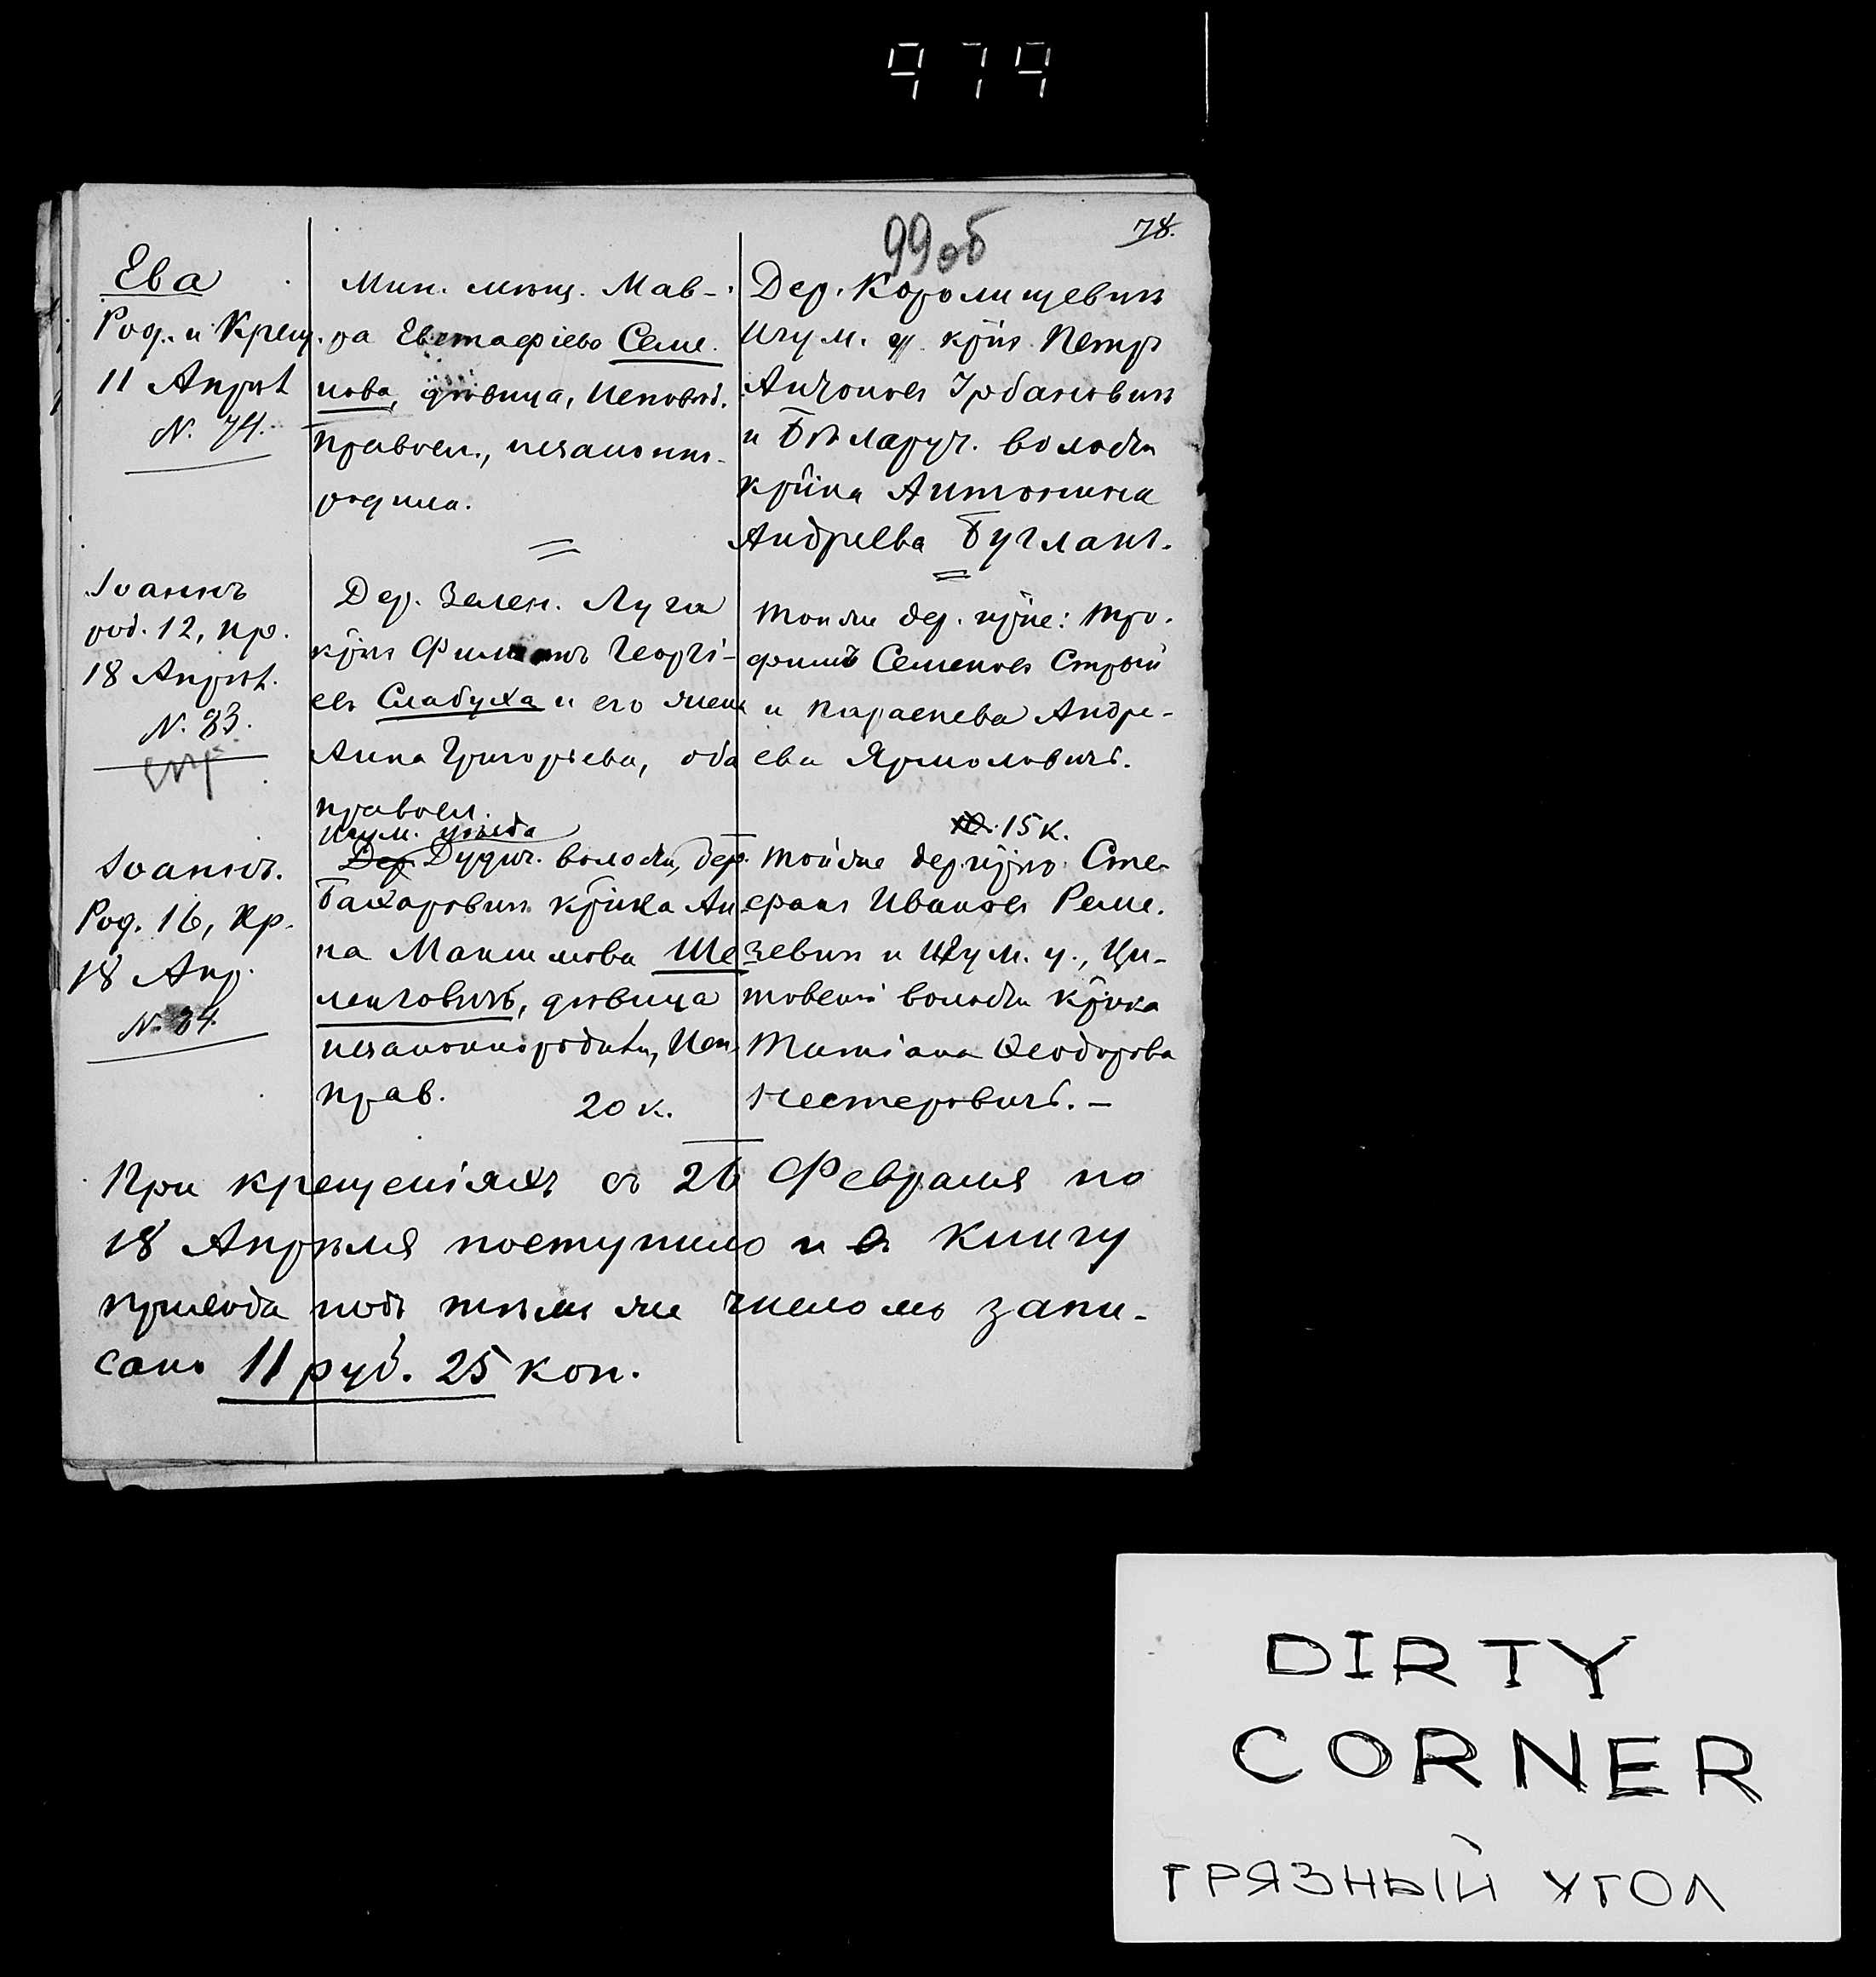 979
99об
78.
Ева
Род. и Крещ.
11 Апрѣл
N. 74.
Мин. мѣщ. Мав-
ра Евстафіева Семе-
нова, дѣвица, исповѣд.
правосл., незаконно-
родила.
Дер. Королищевичъ
Игум. у. кр̃нъ Петръ
Антоновъ Урбановичъ
и Бѣларуч. волости
кр̃нка Антонина
Андреева Буглакъ.
Іоаннъ
род. 12, кр.
18 Апрѣл.
N. 83.
Дер. Зелен. Луга
кр̃нъ Филиппъ Георгі-
евъ Слабуха и его жена
Анна Григорьева, оба
правосл.
Той же дер. кр̃не: Тро-
фимъ Семеновъ Строй
и Параскева Андре-
ева Ярмоловичъ.
15 к.
Іоаннъ.
Род. 16, кр.
18 Апр.
N. 84.
Игум. уѣзда
Дер Дудич. волости, дер.
Бахаровичъ кр̃нка Ан-
на Максимова Ше-
ленговичъ, дѣвица
незаконнородила, Исп.
прав. 20 к.
Той же дер. кр̃нъ Сте-
фанъ Ивановъ Реме-
зевичъ и Игум. у., Ци-
товской волости кр̃нка
Татіана Ѳеодорова
Нестеровичъ. –
При крещеніяхъ съ 26 Февраля по
18 Апрѣля поступило и въ книгу
прихода подъ тѣмъ же числомъ запи-
сано 11 руб. 25 коп.
DIRTY
CORNER
ГРЯЗНЫЙ УГОЛ